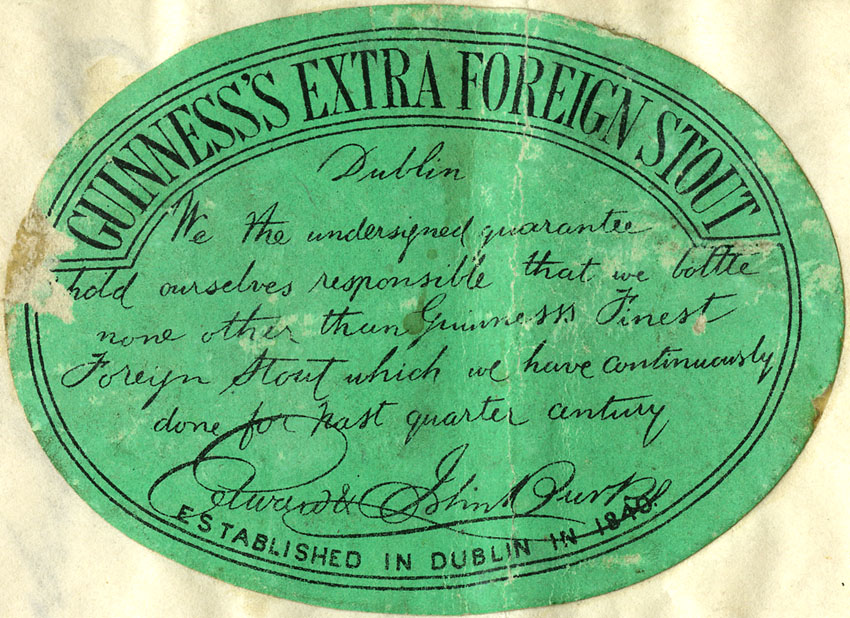 GUINNESS'S EXTRA FOREIGN STOUT
Dublin
We the undersigned guarantee
hold ourselves responsible that we bottle
none other than Guinness's Finest
Foreign Stout which we have continuously
done for past quarter century
Edward & John Burke
ESTABLISHED IN DUBLIN IN 1849.